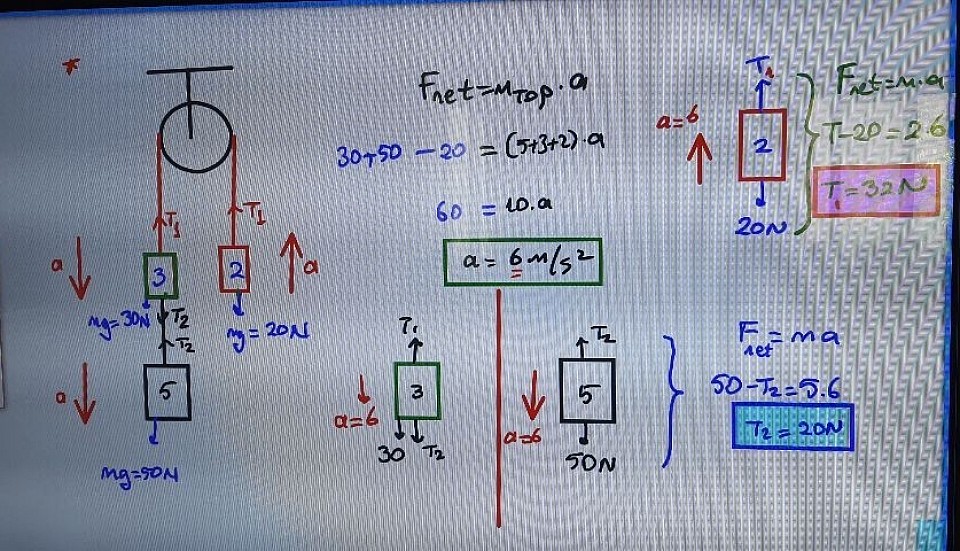 *
T₁
T₁
a
3
2
a
mg=30N
T₂
T₂
mg=20N
a
5
mg=50N
Fnet=mTOP.a
30+50-20=(5+3+2).a
60=10.a
a=6m/s²
T₁
3
a=6
30
T₂
T₂
5
a=6
50N
T₁
a=6
2
20N
Fnet=m.a
T-20=2.6
T₁=32N
Fnet=ma
50-T₂=5.6
T₂=20N